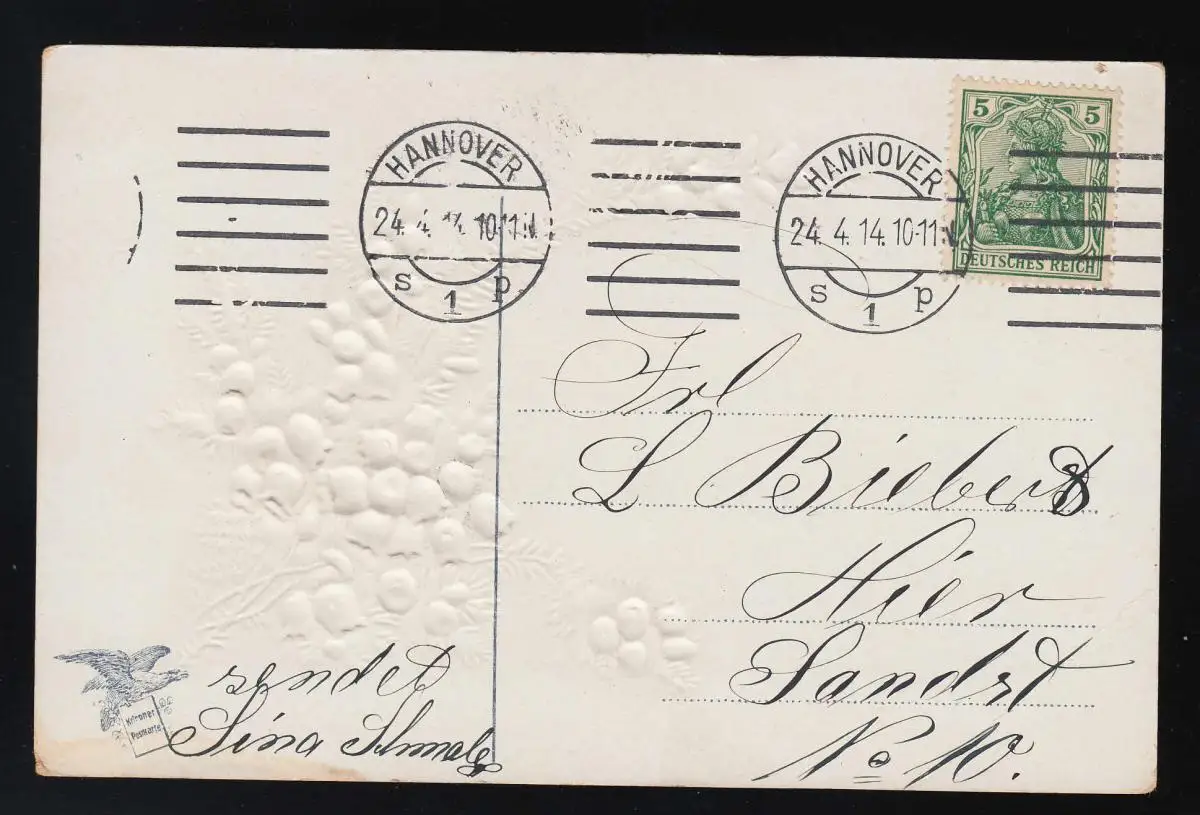 HANNOVER
24. 4. 14. 10-11 N.
s 1 p
HANNOVER
24. 4. 14. 10-11 N.
s 1 p
5 5
DEUTSCHES REICH
Frl
L Biebert
Hier
Sandst
No 10.
sendet
Sina Schmalz
Postkarte